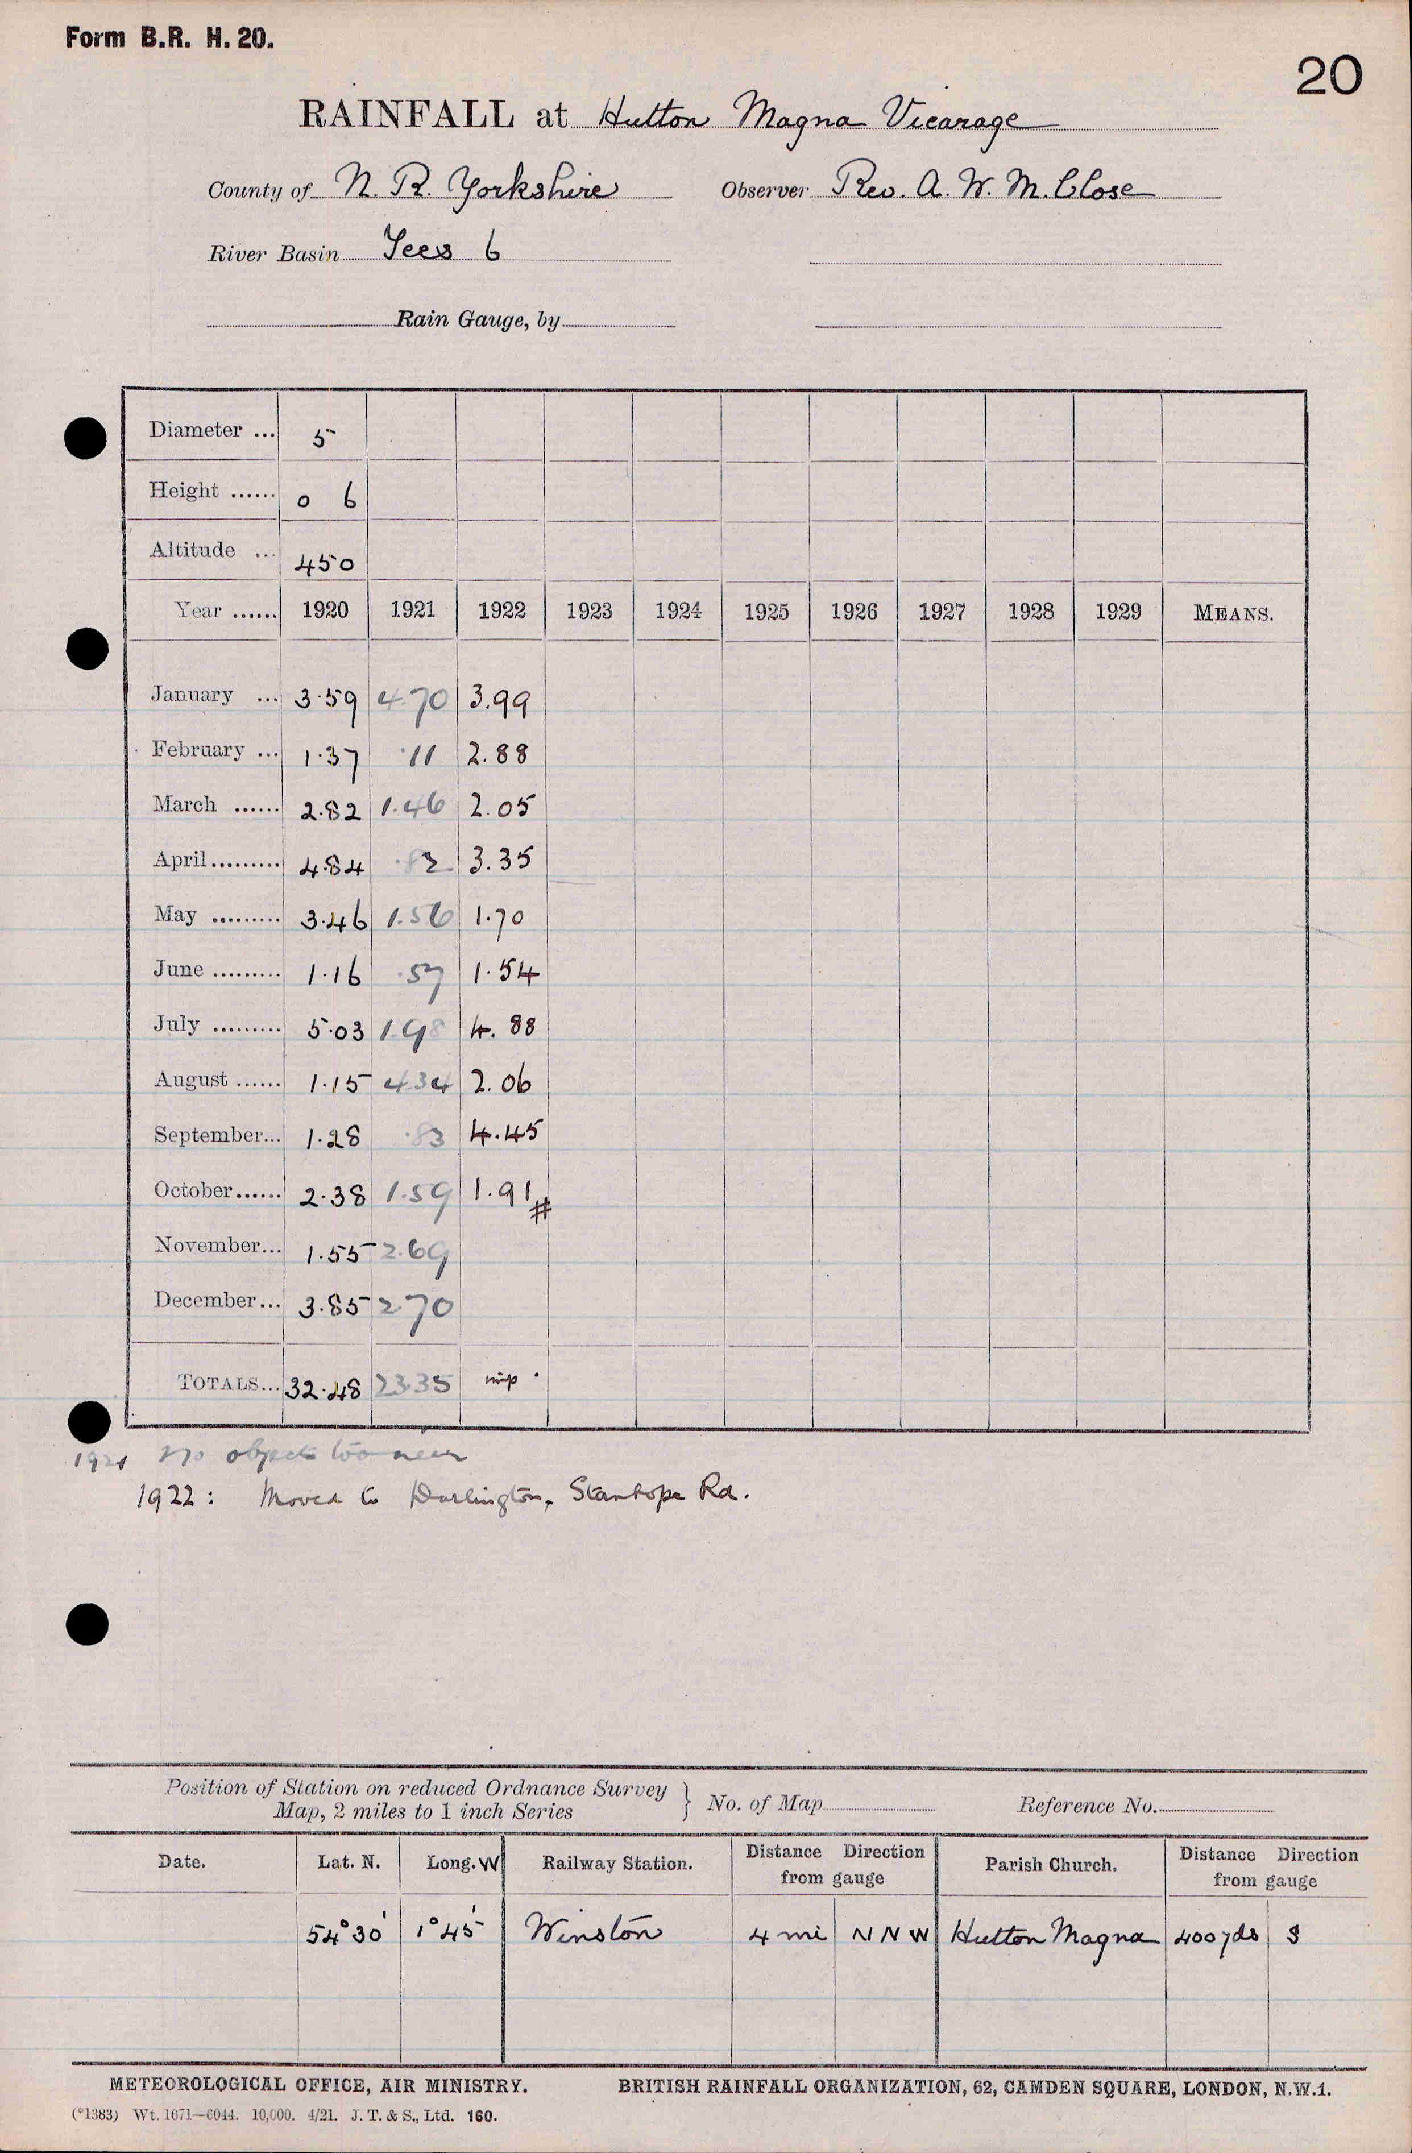 Form B.R. H. 20.
20
RAINFALL at Hutton Magna Vicarage
County of N. R. Yorkshire Observer Rev. A. W. M. Close
River Basin Tees 6
Rain Gauge, by
Diameter ... 5
Height ...... 0 6
Altitude ... 450
Year ...... 1920 1921 1922 1923 1924 1925 1926 1927 1928 1929 MEANS.
January ... 3.59 4.70 3.99
February ... 1.37 .11 2.88
March ...... 2.82 1.46 2.05
April......... 4.84 .82 3.35
May ......... 3.46 1.56 1.70
June ......... 1.16 .57 1.54
July ......... 5.03 1.98 4.88
August ...... 1.15 4.34 2.06
September... 1.28 .83 4.45
October...... 2.38 1.59 1.91 #
November... 1.55 2.69
December... 3.85 2.70
TOTALS... 32.48 23.35 imp.
1921 No objects too near
1922 : Moved to Darlington, Stanhope Rd.
Position of Station on reduced Ordnance Survey
Map, 2 miles to 1 inch Series } No. of Map Reference No.
Date. Lat. N. Long. W Railway Station. Distance Direction from gauge Parish Church. Distance Direction from gauge
54° 30' 1° 45' Winston 4 mi N N W Hutton Magna 400 yds S
METEOROLOGICAL OFFICE, AIR MINISTRY. BRITISH RAINFALL ORGANIZATION, 62, CAMDEN SQUARE, LONDON, N.W.1.
(*1383) Wt. 1671—6044. 10,000. 4/21. J. T. & S., Ltd. 160.